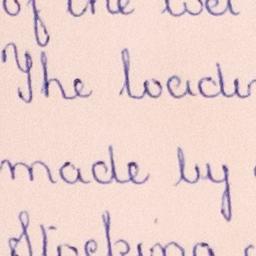 of the
The loadin
made by
Stocking